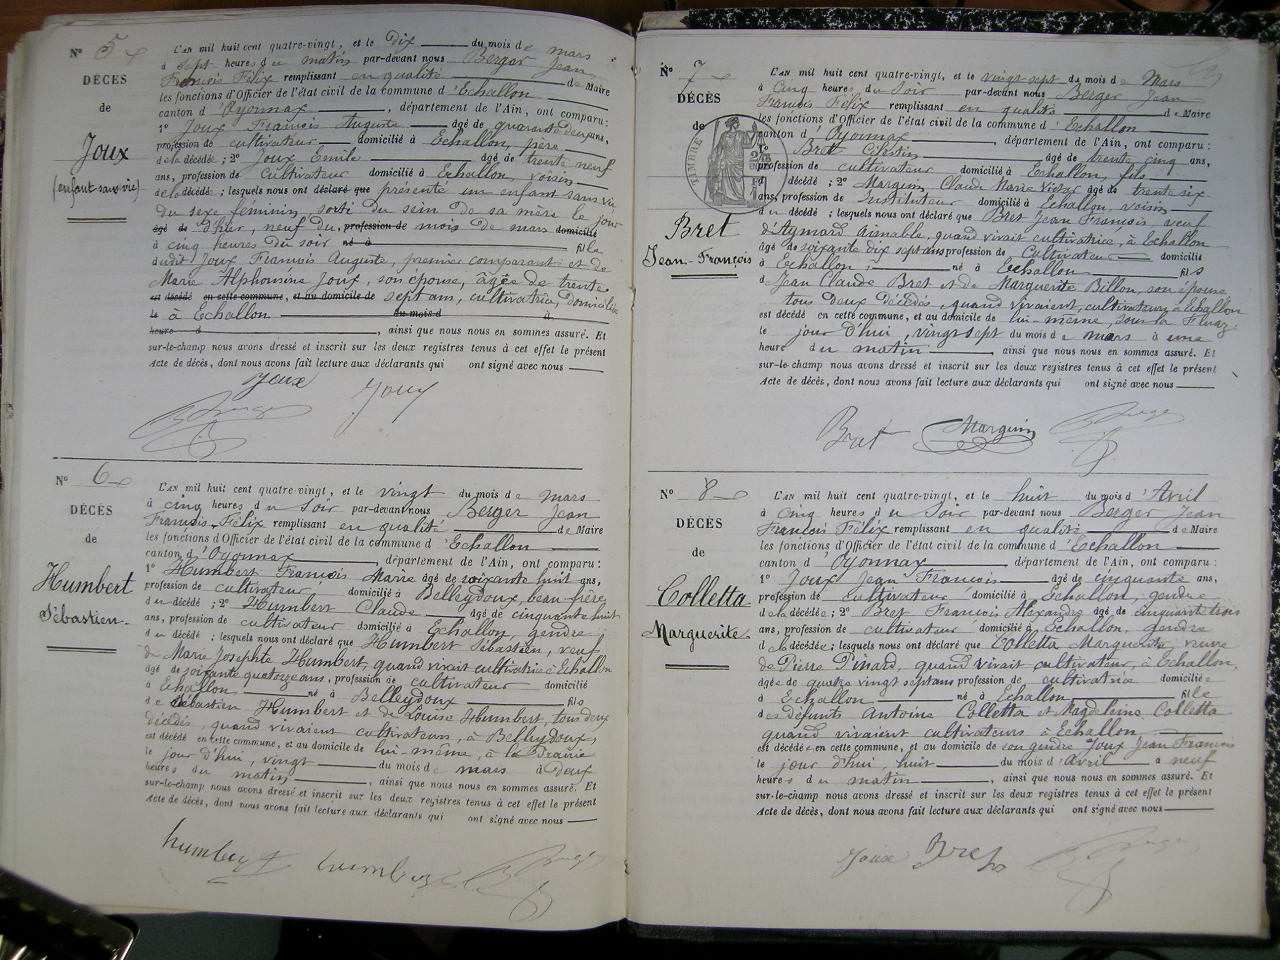 N° 5
DÉCÈS
de
Joux
(enfant sans vie)
L'AN mil huit cent quatre-vingt, et le dix du mois de mars
à sept heures du matin par-devant nous Berger Jean
François Félix remplissant en qualité de Maire
les fonctions d'Officier de l'état civil de la commune d'Echallon
canton d'Oyonnax, département de l'Ain, ont comparu :
1° Joux François Auguste âgé de quarante deux ans,
profession de cultivateur domicilié à Echallon, père
de la décédé ; 2° Joux Emile âgé de trente neuf
ans, profession de cultivateur domicilié à Echallon, voisin
de la décédé ; lesquels nous ont déclaré que présenté un enfant sans vie
du sexe féminin sorti du sein de sa mère le jour
âgé de d'hier, neuf du profession de mois de mars domicilié
à cinq heures du soir né à fille
dudit Joux François Auguste, premier comparant et de
Marie Alphonsine Joux, son épouse, âgée de trente
est décédé en cette commune, et au domicile de sept ans, cultivatrice, domiciliée
le à Echallon du mois d à
heure d , ainsi que nous nous en sommes assuré. Et
sur-le-champ nous avons dressé et inscrit sur les deux registres tenus à cet effet le présent
Acte de décès, dont nous avons fait lecture aux déclarants qui ont signé avec nous
Joux Joux
Berger
N° 6
DÉCÈS
de
Humbert
Sébastien
L'AN mil huit cent quatre-vingt, et le vingt du mois de mars
à cinq heures du soir par-devant nous Berger Jean
François Félix remplissant en qualité de Maire
les fonctions d'Officier de l'état civil de la commune d'Echallon
canton d'Oyonnax, département de l'Ain, ont comparu :
1° Humbert François Marie âgé de soixante huit ans,
profession de cultivateur domicilié à Belleydoux, beau-frère
du décédé ; 2° Humbert Claude âgé de cinquante huit
ans, profession de cultivateur domicilié à Echallon, gendre
du décédé ; lesquels nous ont déclaré que Humbert Sébastien, veuf
de Marie Josephte Humbert, quand vivait cultivatrice à Echallon
âgé de soixante quatorze ans, profession de cultivateur domicilié
à Echallon né à Belleydoux fils
de Sébastien Humbert et de Louise Humbert, tous deux
décédés, quand vivaient cultivateurs, à Belleydoux,
est décédé en cette commune, et au domicile de lui-même, à la Prairie
le jour d'hui, vingt du mois de mars à deux
heures du matin, ainsi que nous nous en sommes assuré. Et
sur-le-champ nous avons dressé et inscrit sur les deux registres tenus à cet effet le présent
Acte de décès, dont nous avons fait lecture aux déclarants qui ont signé avec nous
humbert humbert Berger
N° 7
DÉCÈS
de
TIMBRE
Bret
Jean-François
L'AN mil huit cent quatre-vingt, et le vingt sept du mois de Mars
à cinq heures du soir par-devant nous Berger Jean
François Félix remplissant en qualité de Maire
les fonctions d'Officier de l'état civil de la commune d'Echallon
canton d'Oyonnax, département de l'Ain, ont comparu :
1° Bret Célestin âgé de trente cinq ans,
profession de cultivateur domicilié à Echallon, fils
du décédé ; 2° Marguin, Claude Marie Victor âgé de trente six
ans, profession de Instituteur domicilié à Echallon, voisin
du décédé ; lesquels nous ont déclaré que Bret Jean François, veuf
d'Aymard Aimable, quand vivait cultivatrice, à Echallon
âgé de soixante dix sept ans profession de Cultivateur domicilié
à Echallon, né à Echallon fils
de Jean Claude Bret et de Marguerite Billon, son épouse
tous deux décédés, quand vivaient, cultivateurs à Echallon
est décédé en cette commune, et au domicile de lui-même,
le jour d'hui, vingt sept du mois de mars à une
heure du matin ainsi que nous nous en sommes assuré. Et
sur-le-champ nous avons dressé et inscrit sur les deux registres tenus à cet effet le présent
Acte de décès, dont nous avons fait lecture aux déclarants qui ont signé avec nous
Bret Marguin Berger
N° 8
DÉCÈS
de
Colletta
Marguerite
L'AN mil huit cent quatre-vingt, et le huit du mois d'Avril
à cinq heures du soir par-devant nous Berger Jean
François Félix remplissant en qualité de Maire
les fonctions d'Officier de l'état civil de la commune d'Echallon
canton d'Oyonnax, département de l'Ain, ont comparu :
1° Joux Jean François âgé de cinquante ans,
profession de cultivateur domicilié à Echallon, gendre
de la décédée ; 2° Bret François Alexandre âgé de cinquante trois
ans, profession de cultivateur domicilié à Echallon, gendre
de la décédée ; lesquels nous ont déclaré que Colletta Marguerite, veuve
de Pierre Pinard, quand vivait cultivateur, à Echallon,
âgée de quatre vingt sept ans profession de cultivatrice domiciliée
à Echallon né à Echallon fille
des défunts Antoine Colletta et Magdelaine Colletta
quand vivaient cultivateurs à Echallon
est décédée en cette commune, et au domicile de son gendre Joux Jean François
le jour d'hui, huit du mois d'Avril à neuf
heures du matin, ainsi que nous nous en sommes assuré. Et
sur-le-champ nous avons dressé et inscrit sur les deux registres tenus à cet effet le présent
Acte de décès, dont nous avons fait lecture aux déclarants qui ont signé avec nous
Joux Bret Berger